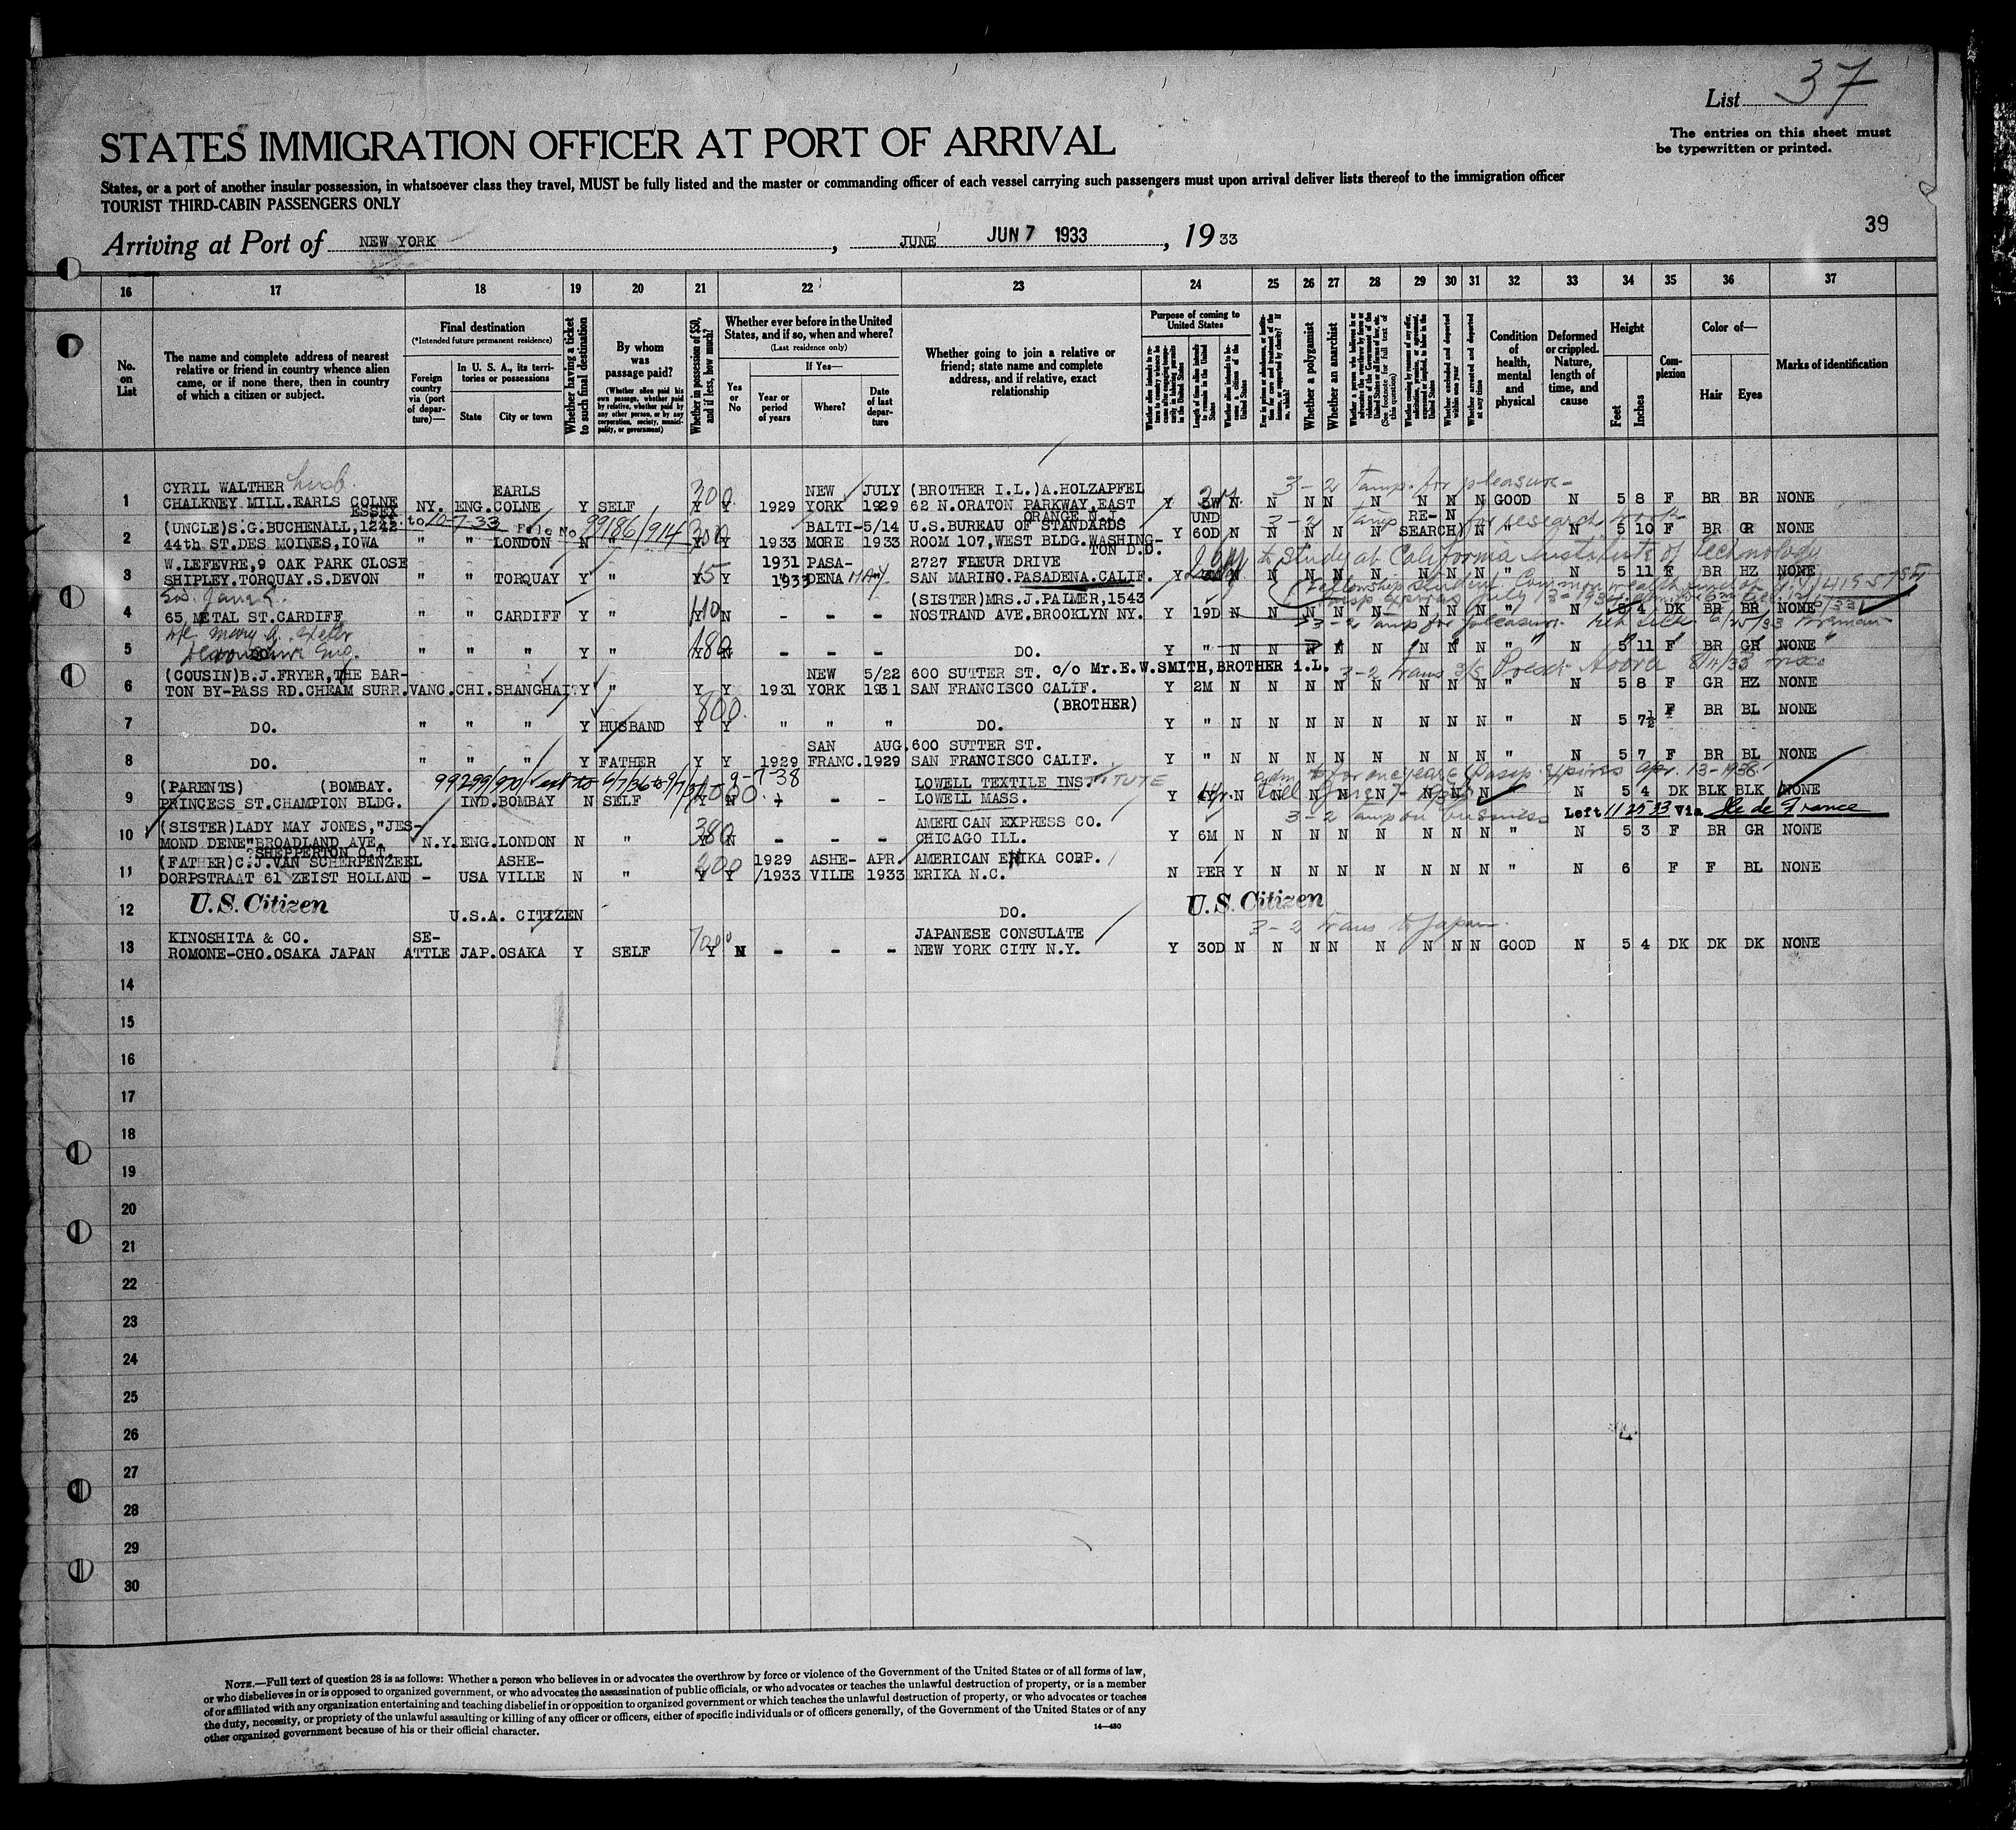 List 37
STATES IMMIGRATION OFFICER AT PORT OF ARRIVAL
The entries on this sheet must
be typewritten or printed.
States, or a port of another insular possession, in whatsoever class they travel, MUST be fully listed and the master or commanding officer of each vessel carrying such passengers must upon arrival deliver lists thereof to the immigration officer
TOURIST THIRD-CABIN PASSENGERS ONLY
39
Arriving at Port of NEW YORK, JUNE JUN 7 1933, 19 33
16 17 18 19 20 21 22 23 24 25 26 27 28 29 30 31 32 33 34 35 36 37
No. on List
The name and complete address of nearest
relative or friend in country whence alien
came, or if none there, then in country
of which a citizen or subject.
Final destination
(*Intended future permanent residence)
Foreign country via (port of departure)—
In U. S. A., its territories or possessions
State
City or town
Whether having a ticket to such final destination
By whom was passage paid?
(Whether alien paid his own passage, whether paid by relative, whether paid by any other person, or by any corporation, society, municipality, or government)
Whether in possession of $50, and if less, how much?
Whether ever before in the United States, and if so, when and where?
(Last residence only)
Yes or No
If Yes—
Year or period of years
Where?
Date of last departure
Whether going to join a relative or
friend; state name and complete
address, and if relative, exact
relationship
Purpose of coming to United States
Whether a polygamist
Whether an anarchist
Condition of health, mental and physical
Deformed or crippled. Nature, length of time, and cause
Height
Feet
Inches
Complexion
Color of—
Hair
Eyes
Marks of identification
CYRIL WALTHER husb. EARLS NEW JULY (BROTHER I.L.)A.HOLZAPFEL 3-2 Temp. for pleasure-
1 CHALKNEY MILL.EARLS COLNE NY. ENG. COLNE Y SELF 300 Y Y 1929 YORK 1929 62 N.ORATON PARKWAY,EAST Y N N N N N N N N GOOD N 5 8 F BR BR NONE
ESSEX ORANGE N.J.
(UNCLE)S.G.BUCHENALL,1242 to 10-7-33 F. No 99186/914 BALTI- 5/14 U.S.BUREAU OF STANDARDS UND 3-2 Temp RE- N for research work
2 44th ST.DES MOINES,IOWA " " LONDON N " Y Y 1933 MORE 1933 ROOM 107,WEST BLDG.WASHING- Y 60D N N N N N SEARCH) N N " N 5 10 F BR GR NONE
TON D.C.
W.LEFEVRE,9 OAK PARK CLOSE 1931 PASA- 2727 FLEUR DRIVE to Study at California Institute of Technology
3 SHIPLEY.TORQUAY.S.DEVON " " TORQUAY Y " Y Y 1933 DENA MAY SAN MARINO.PASADENA.CALIF. Y N N N N N N N N " N 5 11 F BR HZ NONE
(SISTER)MRS.J.PALMER,1543
4 65 METAL ST.CARDIFF " " CARDIFF Y " 110 Y N - - - NOSTRAND AVE.BROOKLYN NY. Y 19D N N N N N N N N " N 5 4 DK BR BR NONE
3-2 Temp for pleasure.
5 " " " Y " 180 Y N - - - DO. Y " N N N N N N N N " " 5 11 F BR GR NONE
(COUSIN)B.J.FRYER,THE BAR- NEW 5/22 600 SUTTER ST. c/o Mr.E.W.SMITH,BROTHER i.L. 3-2 trans
6 TON BY-PASS RD.CHEAM SURR. VANC. CHI. SHANGHAI Y " Y Y 1931 YORK 1931 SAN FRANCISCO CALIF. Y 2M N N N N N N N N " N 5 8 F GR HZ NONE
(BROTHER)
7 DO. " " " Y HUSBAND 800. Y Y " " " DO. Y " N N N N N N N N " N 5 7½ F BR BL NONE
SAN AUG. 600 SUTTER ST.
8 DO. " " " Y FATHER Y Y 1929 FRANC. 1929 SAN FRANCISCO CALIF. Y " N N N N N N N N " N 5 7 F BR BL NONE
(PARENTS) (BOMBAY. LOWELL TEXTILE INSTITUTE
9 PRINCESS ST.CHAMPION BLDG. IND. BOMBAY N SELF N - - - LOWELL MASS. Y N N N N N N N N " N 5 4 DK BLK BLK NONE
Left 11 25 33 Via Ile de France
(SISTER)LADY MAY JONES,"JES- AMERICAN EXPRESS CO. 3-2 Temp on business
10 MOND DENE"BROADLAND AVE. N.Y. ENG. LONDON N " 380 Y N - - - CHICAGO ILL. Y 6M N N N N N N N N " N 5 3 F BR GR NONE
SHEPPERTON O.T
(FATHER)C.J.VAN SCHERPENZEEL ASHE- 200 1929 ASHE- APR. AMERICAN ENKA CORP.
11 DORPSTRAAT 61 ZEIST HOLLAND - USA VILLE N " Y Y /1933 VILIE 1933 ERIKA N.C. N PER Y N N N N N N N " N 6 F F BL NONE
12 U.S. Citizen U.S.A. CITIZEN DO. U.S. Citizen
KINOSHITA & CO. SE- JAPANESE CONSULATE 3-2 trans to Japan.
13 ROMONE-CHO.OSAKA JAPAN ATTLE JAP. OSAKA Y SELF Y N - - - NEW YORK CITY N.Y. Y 30D N N N N N N N N GOOD N 5 4 DK DK DK NONE
14
15
16
17
18
19
20
21
22
23
24
25
26
27
28
29
30
NOTE.—Full text of question 28 is as follows: Whether a person who believes in or advocates the overthrow by force or violence of the Government of the United States or of all forms of law,
or who disbelieves in or is opposed to organized government, or who advocates the assassination of public officials, or who advocates or teaches the unlawful destruction of property, or is a member
of or affiliated with any organization entertaining and teaching disbelief in or opposition to organized government or which teaches the unlawful destruction of property, or who advocates or teaches
the duty, necessity, or propriety of the unlawful assaulting or killing of any officer or officers, either of specific individuals or of officers generally, of the Government of the United States or of any
other organized government because of his or their official character.
14—480